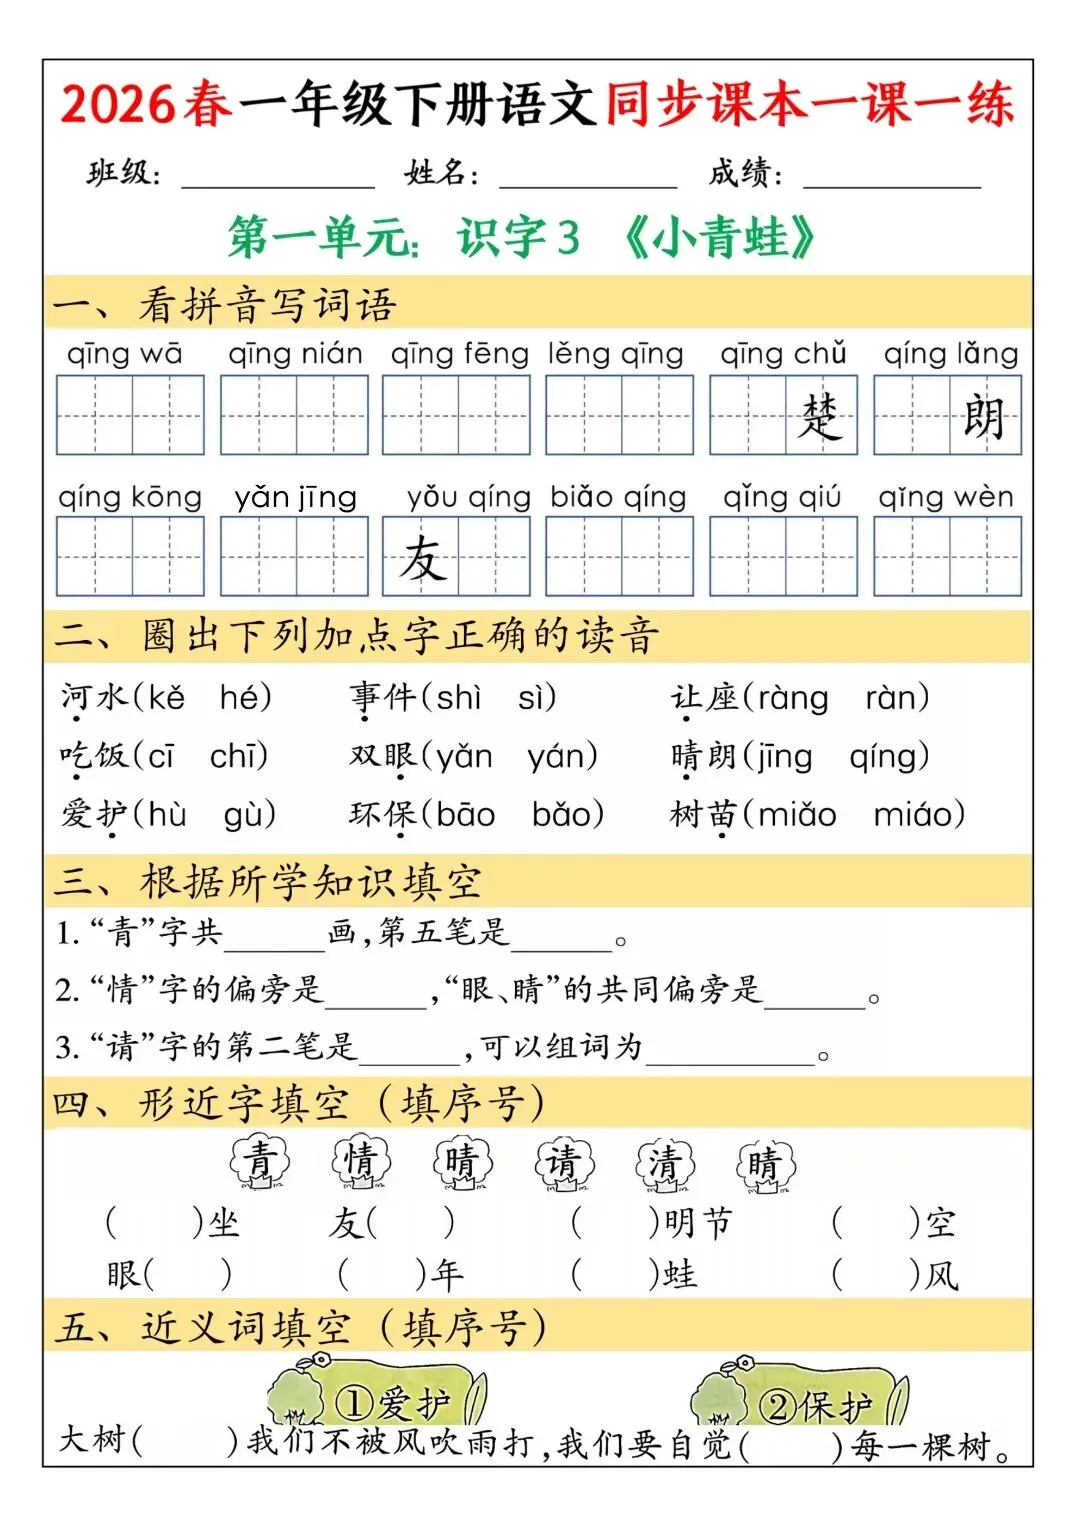 2026春一年级下册语文同步课本一课一练
班级：____ 姓名：____ 成绩：____
第一单元：识字3 《小青蛙》
一、看拼音写词语
qīng wā qīng nián qīng fēng lěng qīng qīng chǔ qíng lǎng
楚 朗
qíng kōng yǎn jīng yǒu qíng biǎo qíng qǐng qiú qǐng wèn
友
二、圈出下列加点字正确的读音
河水(kě hé) 事件(shì sì) 让座(ràng ràn)
吃饭(cī chī) 双眼(yǎn yán) 晴朗(jīng qíng)
爱护(hù gù) 环保(bāo bǎo) 树苗(miǎo miáo)
三、根据所学知识填空
1.“青”字共____画,第五笔是____。
2.“情”字的偏旁是____,“眼、睛”的共同偏旁是____。
3.“请”字的第二笔是____,可以组词为____。
四、形近字填空（填序号）
青 情 晴 请 清 睛
( )坐 友( ) ( )明节 ( )空
眼( ) ( )年 ( )蛙 ( )风
五、近义词填空（填序号）
①爱护 ②保护
大树( )我们不被风吹雨打,我们要自觉( )每一棵树。